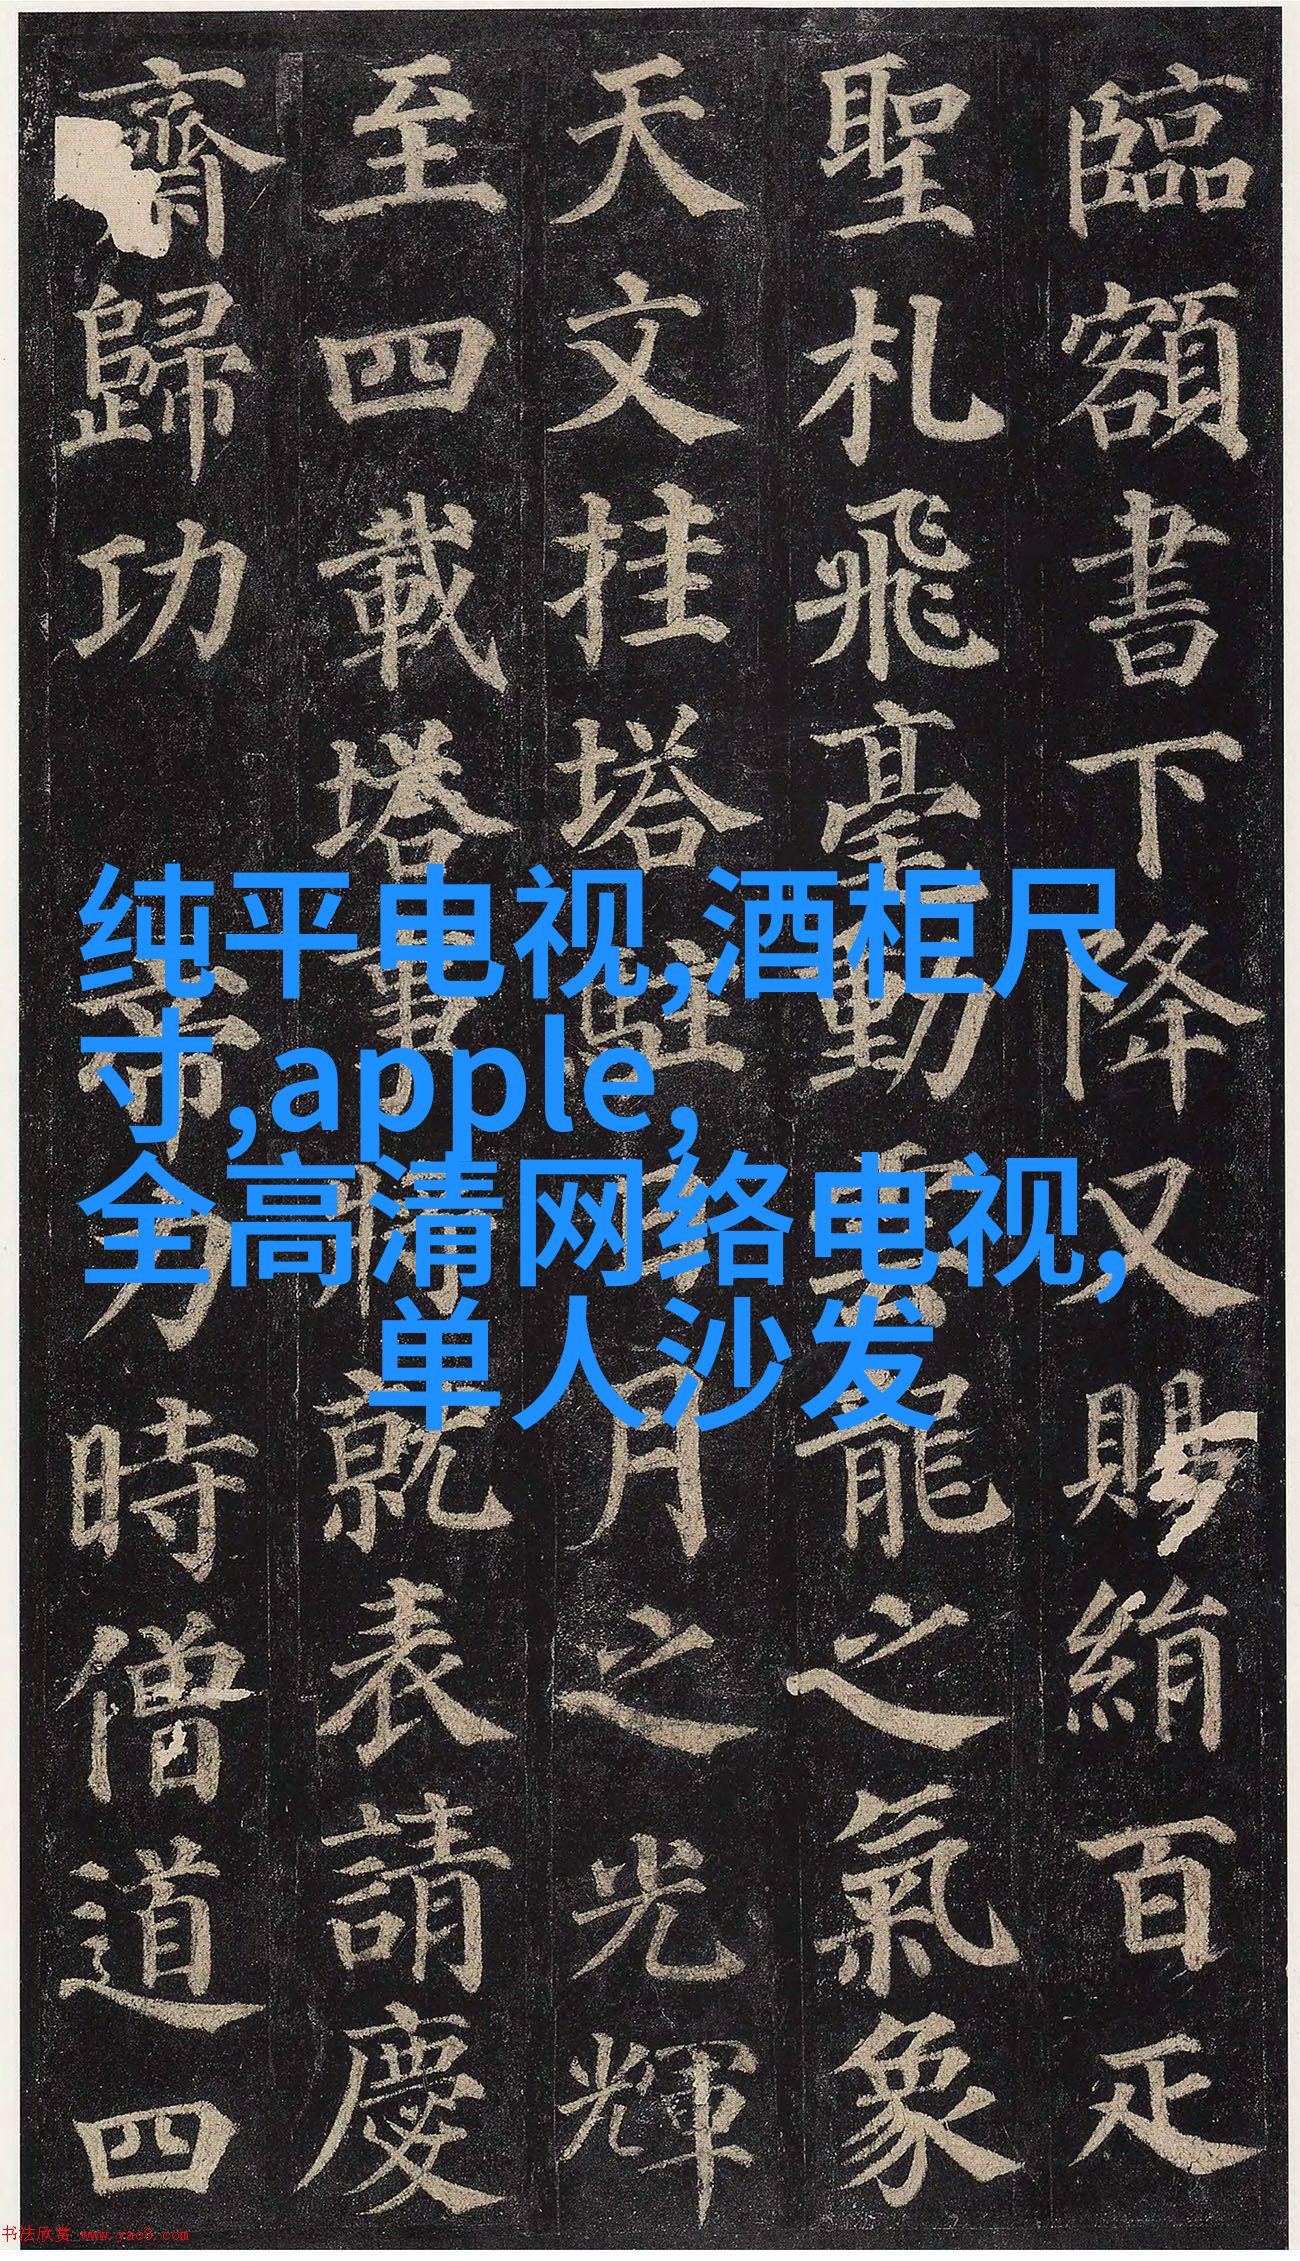 臨額書下降又賜絹百疋
聖札飛毫動雲龍之氣象
天文挂塔駐日月之光輝
至四載塔事將就表請慶
齋歸功
帝力時僧道四
纯平电视,酒柜尺
寸,apple,
全高清网络电视,
单人沙发
书法欣赏 www.yac8.com